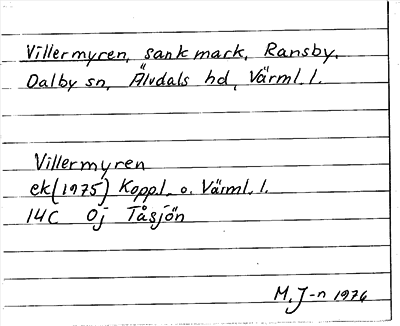 Villermyren, sank mark, Ransby.
Dalby sn, Älvdals hd, Värml. l.
Villermyren
ek(1975) Koppl. o. Värml. l.
14C 0j Tåsjön
M. J-n 1976